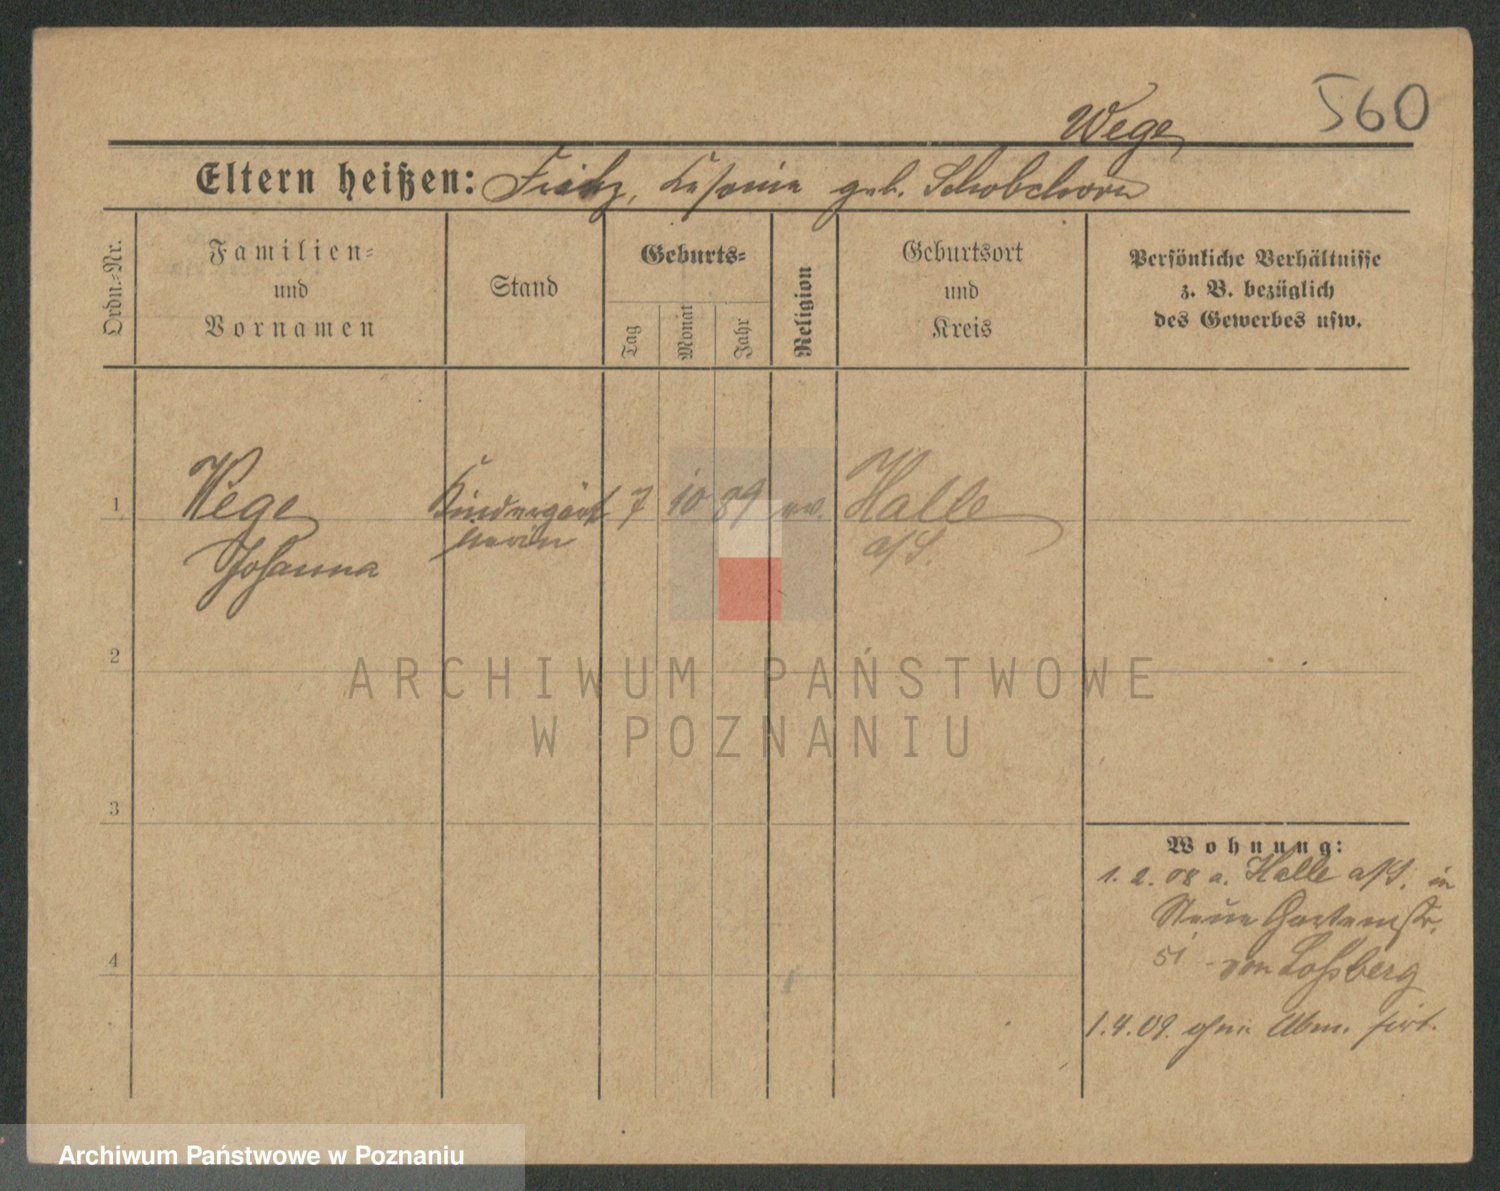 560
Wege
Eltern heißen: Fritz, geb. Schobchorn
Ordn.-Nr.
Familien-
und
Vornamen
Stand
Geburts-
Tag
Monat
Jahr
Religion
Geburtsort
und
Kreis
Persönliche Verhältnisse
z. B. bezüglich
des Gewerbes usw.
1
Wege
Johanna
Kindergärt
nerin
7
10
89
ev.
Halle
a/S.
2
3
4
Wohnung:
1. 2. 08 a. Halle a/S. in
Neue Gartenstr.
51 von Loßberg
1. 4. 09. ohne Abm. fort.
ARCHIWUM PAŃSTWOWE
W POZNANIU
Archiwum Państwowe w Poznaniu